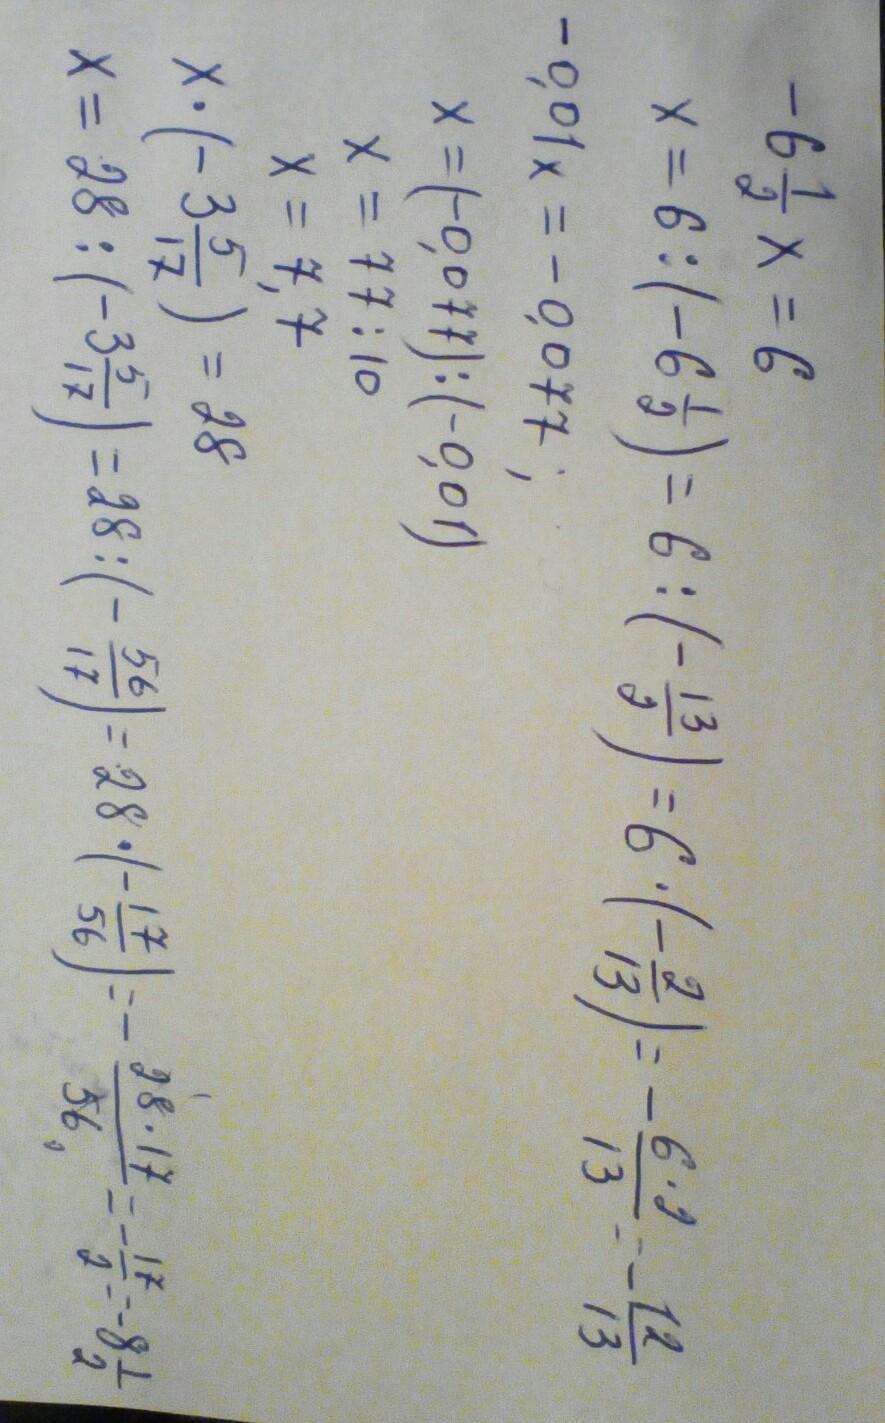 -6 1/2 x = 6
x = 6 : (-6 1/2) = 6 : (-13/2) = 6 · (-2/13) = -6·2/13 = -12/13
-0,01x = -0,077;
x = (-0,077) : (-0,01)
x = 77 : 10
x = 7,7
x · (-3 5/17) = 28
x = 28 : (-3 5/17) = 28 : (-56/17) = 28 · (-17/56) = -28·17/56 = -17/2 = -8 1/2